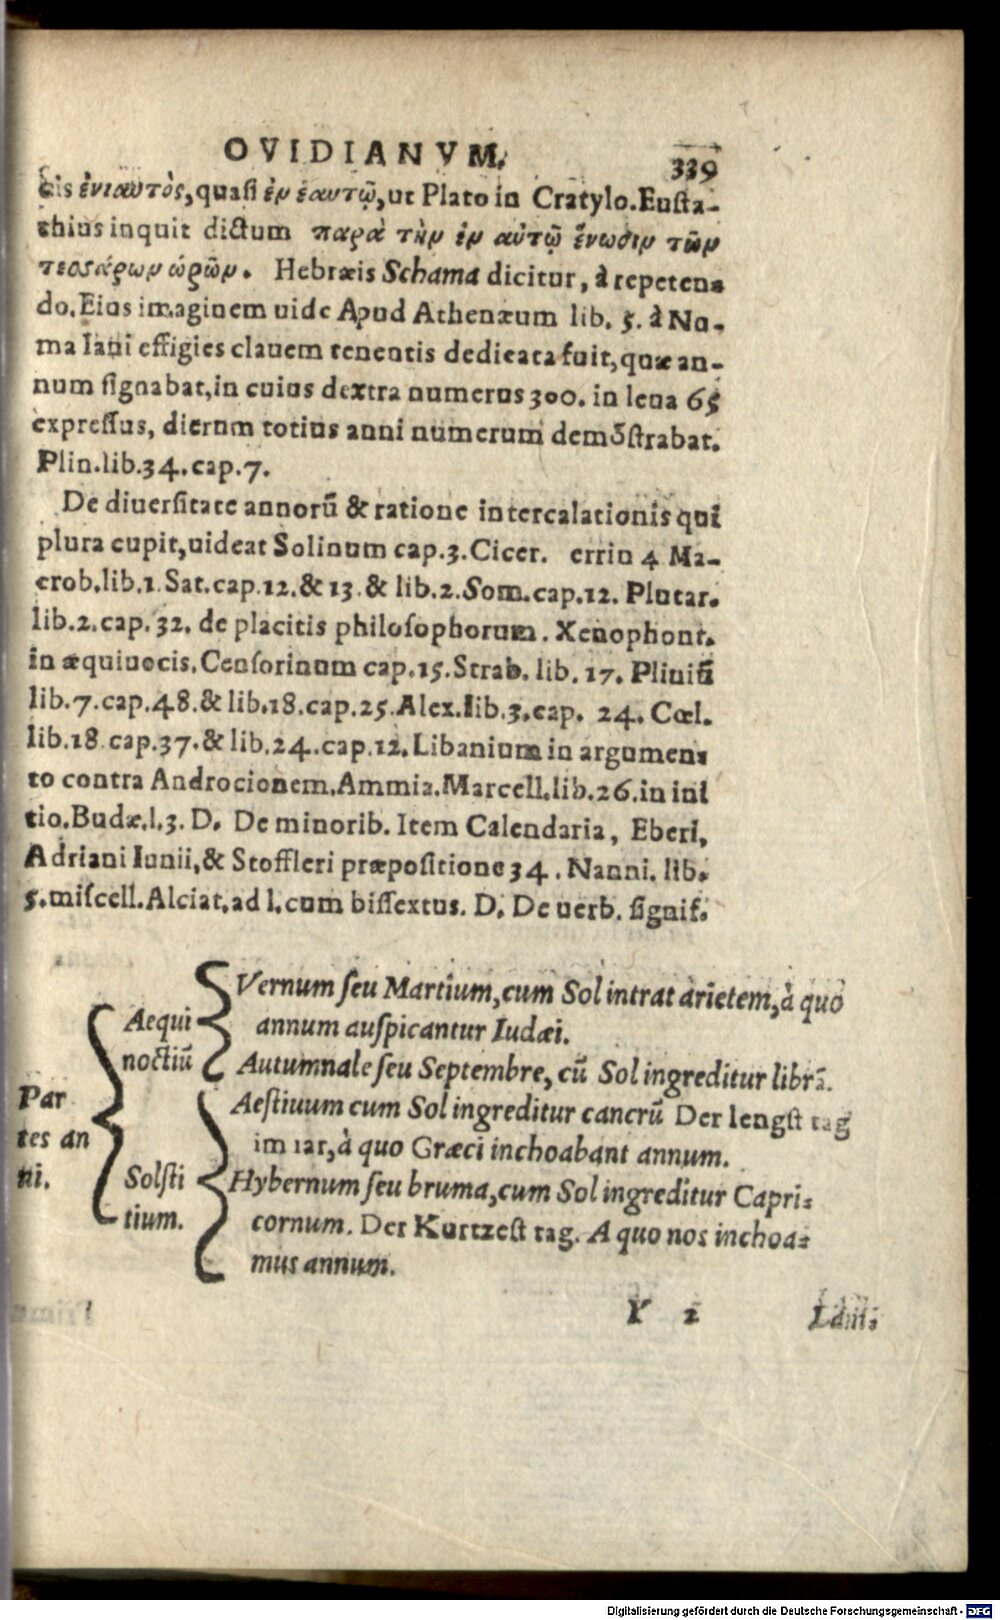 OVIDIANVM.
339
cis ἐνιαυτὸς, quasi ἐν ἑαυτῷ, ut Plato in Cratylo. Eusta-
thius inquit dictum παρὰ τὴν ἐν αὐτῷ ἕνωσιν τῶν
τεσσάρων ὡρῶν. Hebræis Schama dicitur, à repeten-
do. Eius imaginem uide Apud Athenæum lib. 5. à Nu-
ma Iani effigies clauem tenentis dedicata fuit, quæ an-
num signabat, in cuius dextra numerus 300. in leua 65
expressus, dierum totius anni numerum demõstrabat.
Plin. lib. 34. cap. 7.
De diuersitate annorũ & ratione intercalationis qui
plura cupit, uideat Solinum cap. 3. Cicer. errin 4 Ma-
crob. lib. 1. Sat. cap. 12. & 13 & lib. 2. Som. cap. 12. Plutar.
lib. 2. cap. 32. de placitis philosophorum. Xenophont.
in æquiuocis. Censorinum cap. 15. Strab. lib. 17. Pliniũ
lib. 7. cap. 48. & lib. 18. cap. 25. Alex. lib. 3. cap. 24. Cœl.
lib. 18 cap. 37. & lib. 24. cap. 12. Libanium in argumen-
to contra Androcionem. Ammia. Marcell. lib. 26. in ini
tio. Budæ. l. 3. D. De minorib. Item Calendaria, Eberi,
Adriani Iunii, & Stoffleri præpositione 34. Nanni. lib.
5. miscell. Alciat. ad l. cum bissextus. D. De uerb. signif.
Par
tes an
ni.
Aequi
noctiũ
Vernum seu Martium, cum Sol intrat arietem, à quo
annum auspicantur Iudæi.
Autumnale seu Septembre, cũ Sol ingreditur librã.
Solsti
tium.
Aestiuum cum Sol ingreditur cancrũ Der lengst tag
im iar, à quo Græci inchoabant annum.
Hybernum seu bruma, cum Sol ingreditur Capri-
cornum. Der Kurtzest tag. A quo nos inchoa-
mus annum.
Y 2
Digitalisierung gefördert durch die Deutsche Forschungsgemeinschaft - DFG